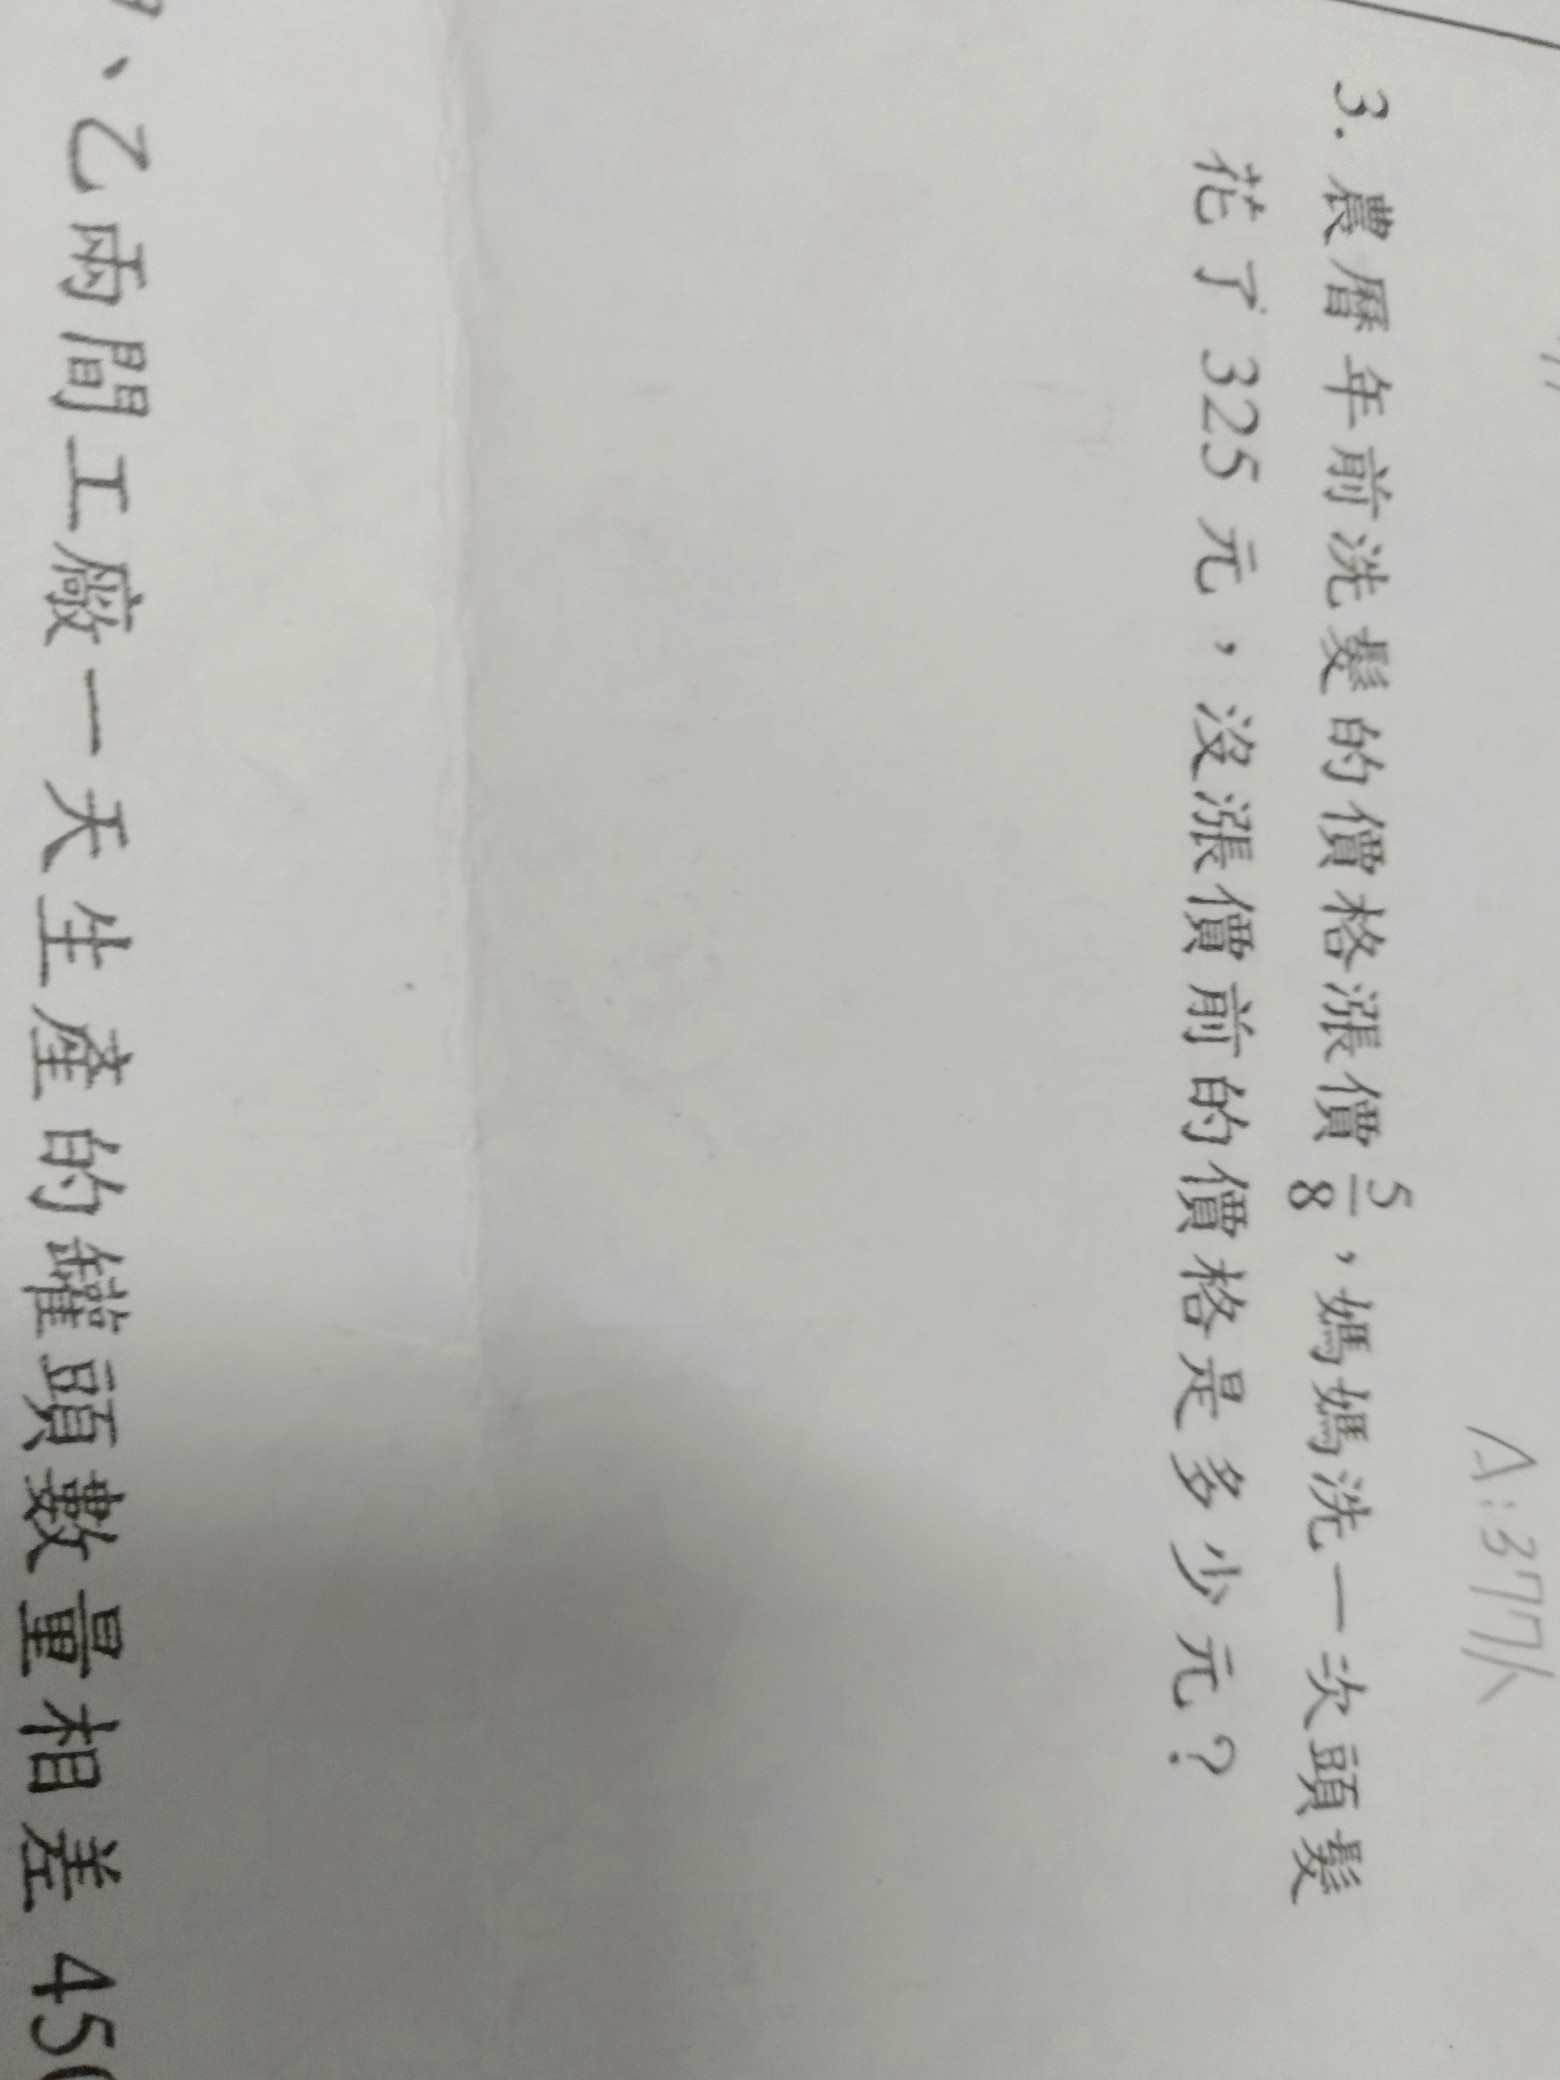 A:377人
3. 農曆年前洗髮的價格漲價 5/8，媽媽洗一次頭髮
花了 325 元，沒漲價前的價格是多少元？
、乙兩間工廠一天生產的罐頭數量相差 450